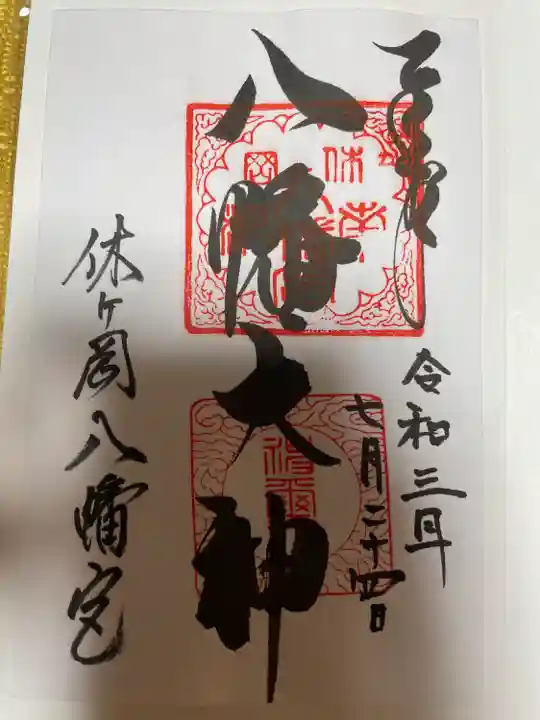 令和三年
七月二十四日
八幡大神
休ケ岡八幡宮